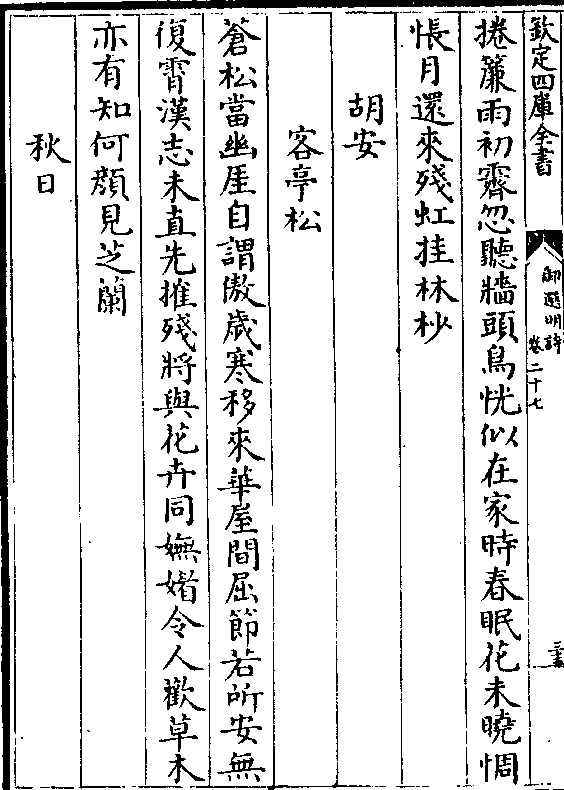 欽定四庫全書
御選明詩
卷二十七
捲簾雨初霽忽聽牆頭鳥恍似在家時春眠花未曉惆
悵月還來殘虹挂林杪
胡安
客亭松
蒼松當幽厓自謂傲歲寒移來華屋間屈節若所安無
復霄漢志未直先摧殘將與花卉同嫵媚令人歡草木
亦有知何顏見芝蘭
秋日